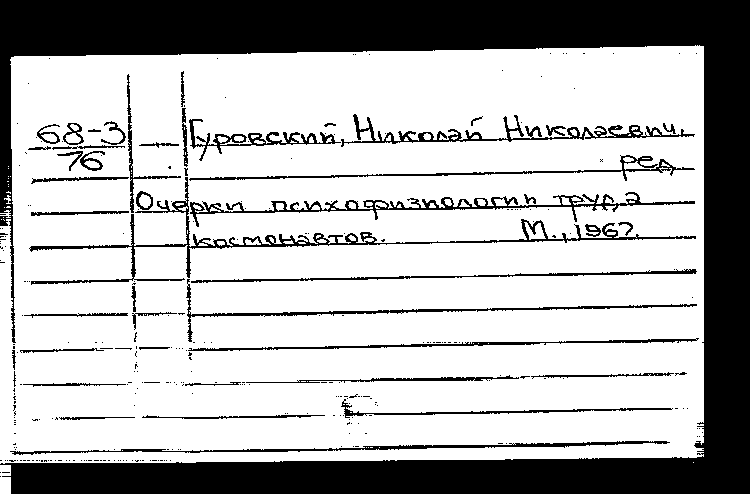 68-3 Гуровский, Николай Николаевич,
76 ред.
Очерки психофизиологии труда
космонавтов. М., 1967.